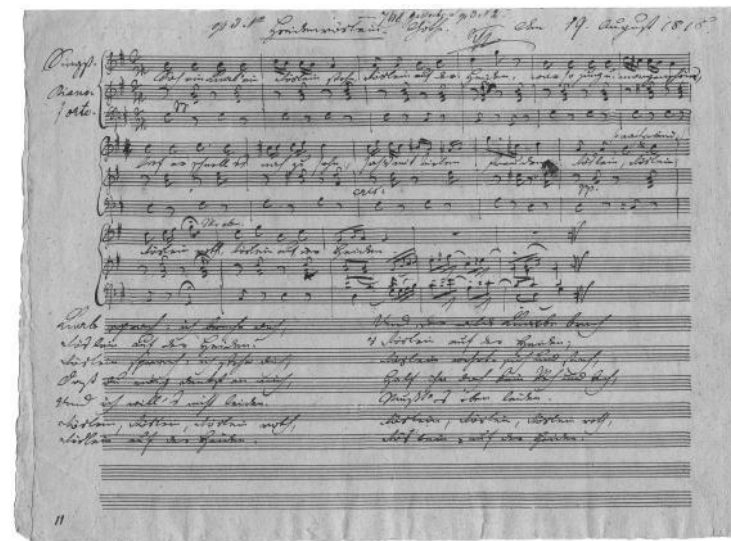 Heidenröslein. Göthe. den 19. August 1815
Singst.
Piano-
forte.
Sah ein Knab' ein Röslein stehn, Röslein auf der Heiden, war so jung u. morgenschön,
lief er schnell es nah zu sehn, sah's mit vielen Freuden. Röslein, Röslein,
cresc. pp.
Röslein roth, Röslein auf der Heiden.
Knabe sprach: ich breche dich,
Röslein auf der Heiden!
Röslein sprach: ich steche dich,
Daß du ewig denkst an mich,
Und ich will's nicht leiden.
Röslein, Röslein, Röslein roth,
Röslein auf der Heiden.
Und der wilde Knabe brach
's Röslein auf der Heiden;
Röslein wehrte sich und stach,
Half ihr doch kein Weh und Ach,
Mußt' es eben leiden.
Röslein, Röslein, Röslein roth,
Röslein auf der Heiden.
11